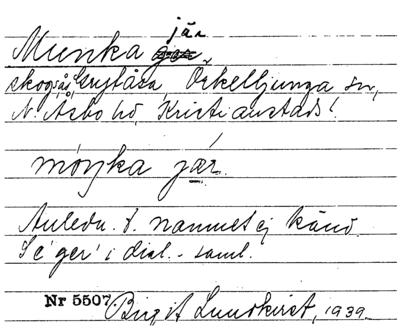 jär
Munka
skogsås, Grytåsa, Örkelljunga sn,
N. Åsbo hd, Kristianstads l.
móŋka jær.
Anledn. t. namnet ej känd.
Se 'ger' i dial. - saml.
Nr 5507. Birgit Lundkvist, 1939.